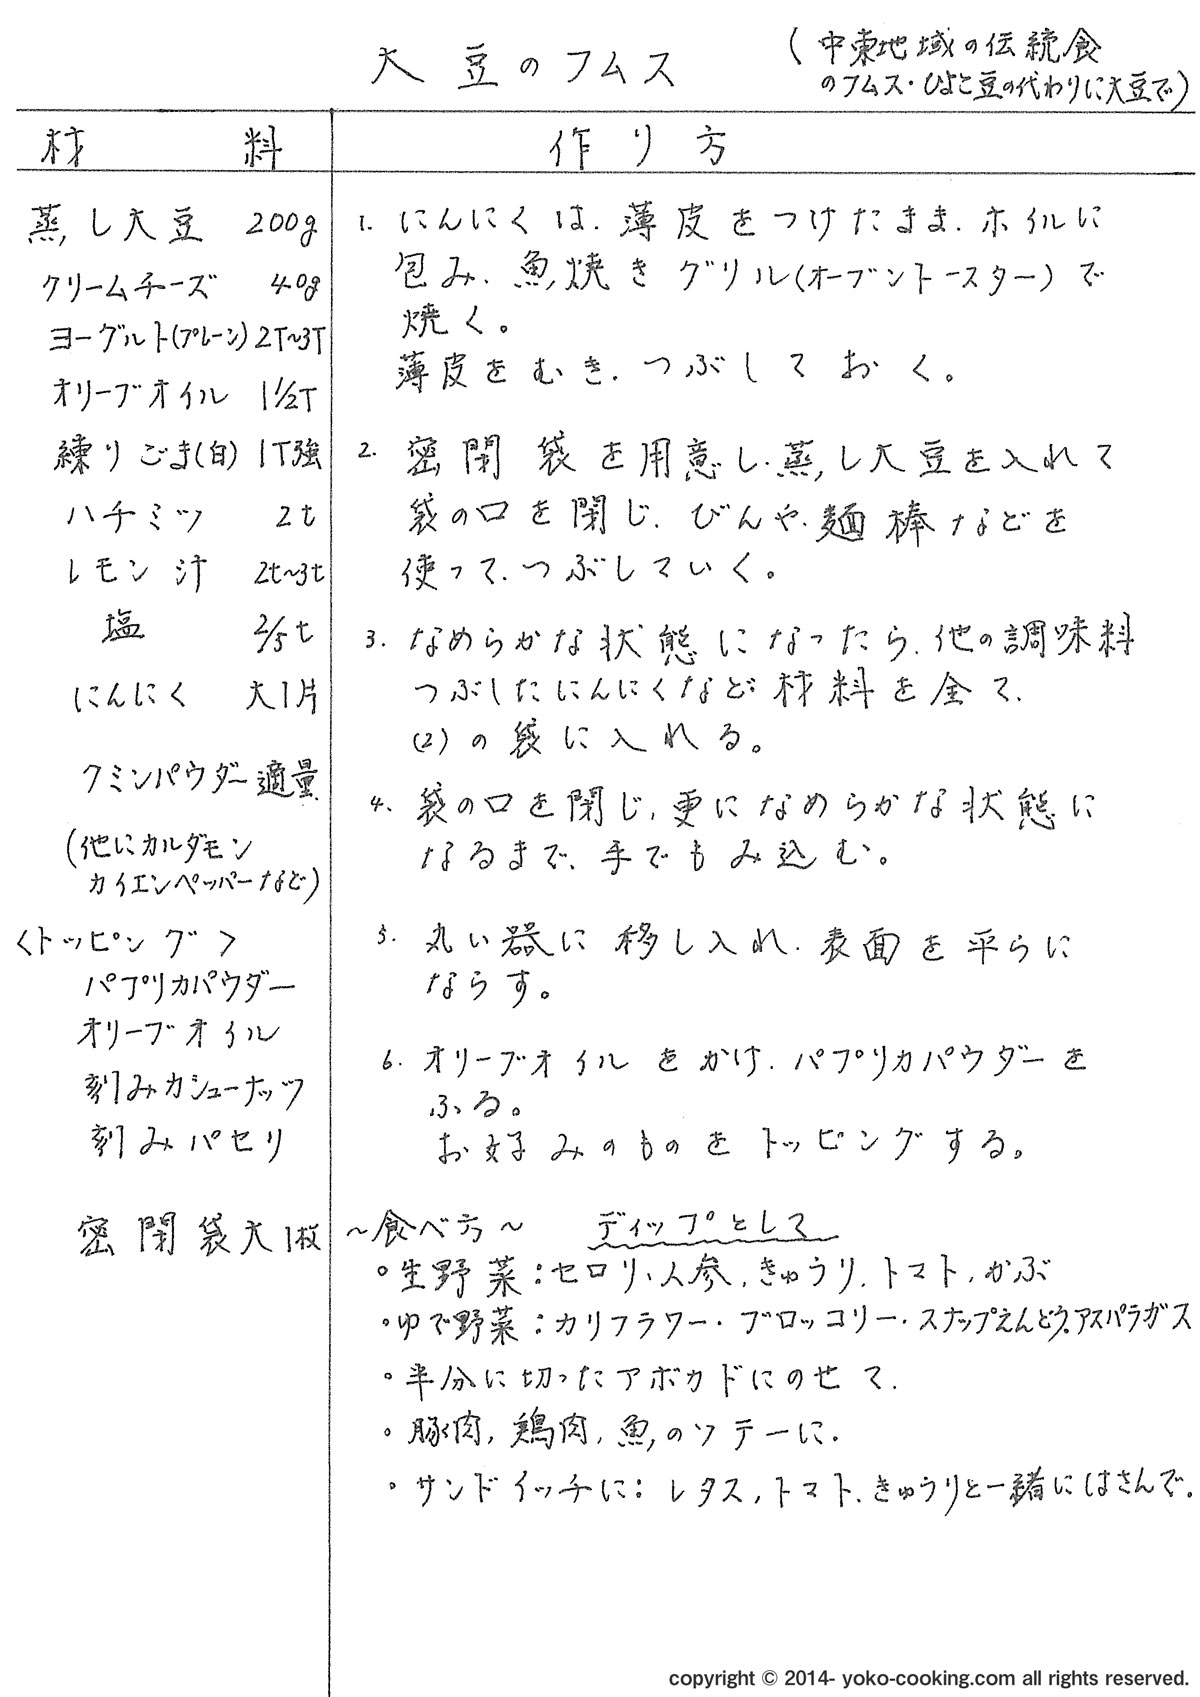 大豆のフムス
(中東地域の伝統食
のフムス・ひよこ豆の代わりに大豆で)
材料
作り方
蒸し大豆 200g
クリームチーズ 40g
ヨーグルト(プレーン) 2T~3T
オリーブオイル 1 1/2T
練りごま(白) 1T強
ハチミツ 2t
レモン汁 2t~3t
塩 2/5t
にんにく 大1片
クミンパウダー 適量
(他にカルダモン
カイエンペッパーなど)
<トッピング>
パプリカパウダー
オリーブオイル
刻みカシューナッツ
刻みパセリ
密閉袋大1枚
1. にんにくは、薄皮をつけたまま、ホイルに
包み、魚焼きグリル(オーブントースター)で
焼く。
薄皮をむき、つぶしておく。
2. 密閉袋を用意し、蒸し大豆を入れて
袋の口を閉じ、びんや、麺棒などを
使って、つぶしていく。
3. なめらかな状態になったら、他の調味料
つぶしたにんにくなど材料を全て、
(2)の袋に入れる。
4. 袋の口を閉じ、更になめらかな状態に
なるまで、手でもみ込む。
5. 丸い器に移し入れ、表面を平らに
ならす。
6. オリーブオイルをかけ、パプリカパウダーを
ふる。
お好みのものをトッピングする。
~食べ方~ ディップとして
・生野菜:セロリ、人参、きゅうり、トマト、かぶ
・ゆで野菜:カリフラワー・ブロッコリー・スナップえんどう、アスパラガス
・半分に切ったアボカドにのせて、
・豚肉、鶏肉、魚のソテーに、
・サンドイッチに:レタス、トマト、きゅうりと一緒にはさんで、
copyright © 2014- yoko-cooking.com all rights reserved.